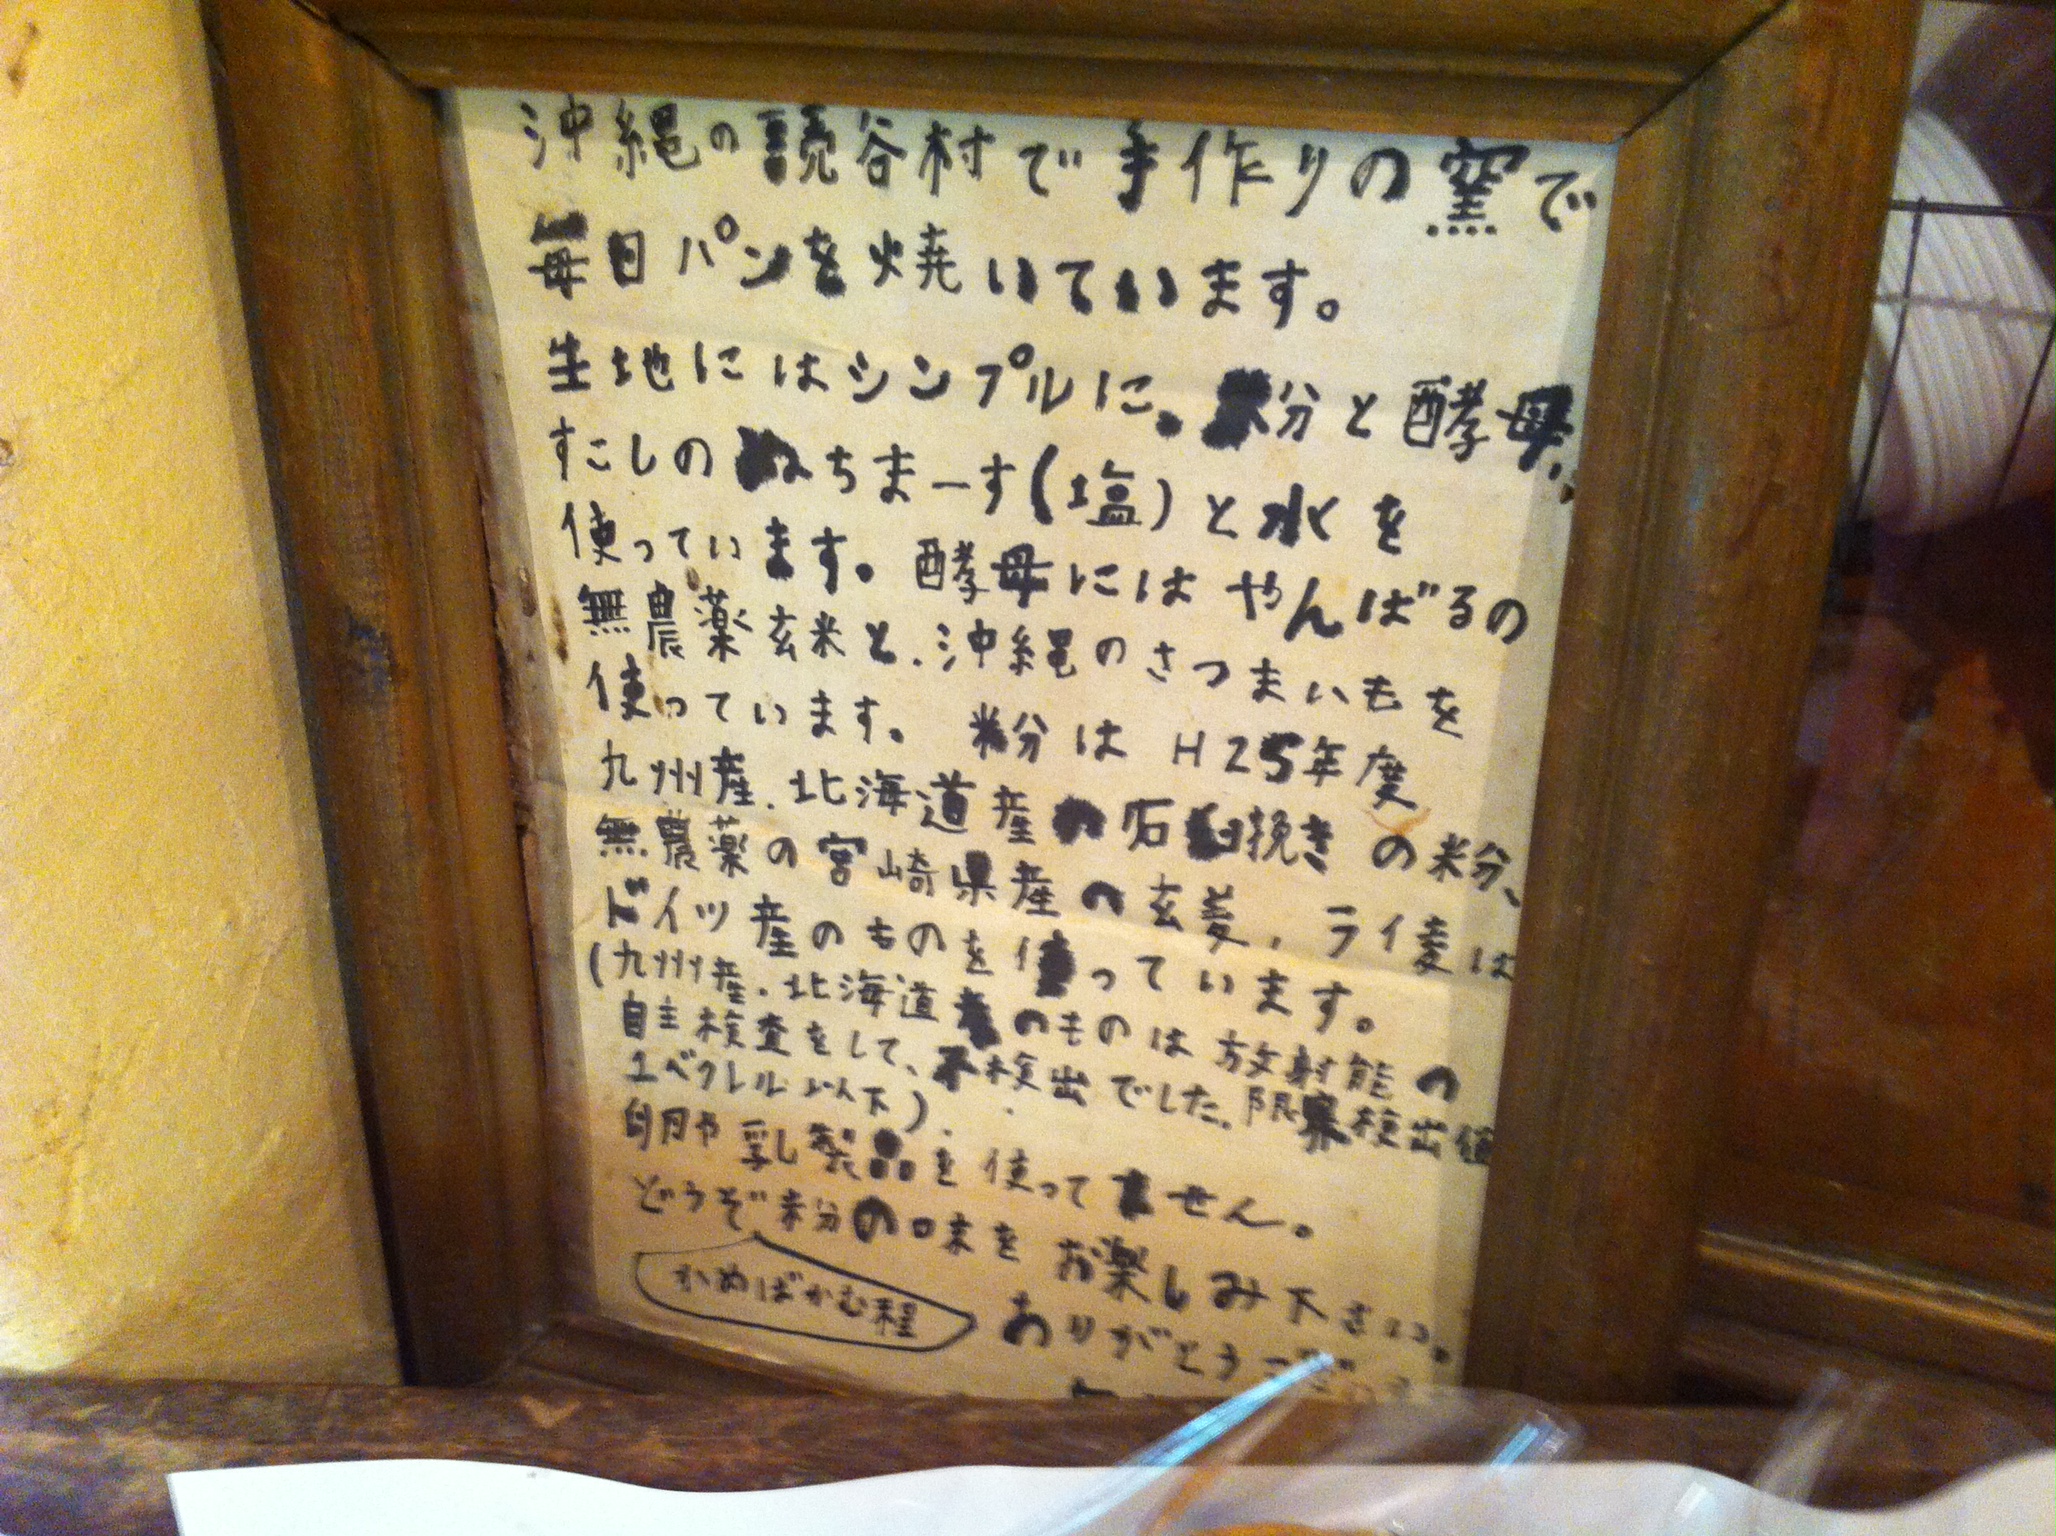 沖縄の読谷村で手作りの窯で
毎日パンを焼いています。
生地にはシンプルに。粉と酵母、
すこしのぬちまーす(塩)と水を
使っています。酵母にはやんばるの
無農薬玄米と、沖縄のさつまいもを
使っています。 粉は H25年度
九州産、北海道産の石臼挽きの粉、
無農薬の宮崎県産の玄麦、ライ麦は
ドイツ産のものを使っています。
(九州産、北海道産のものは放射能の
自主検査をして、不検出でした。限界検出値
1ベクレル以下)
卵や乳製品を使ってません。
どうぞ粉の味をお楽しみ下さい。
かめばかむ程
ありがとうござ